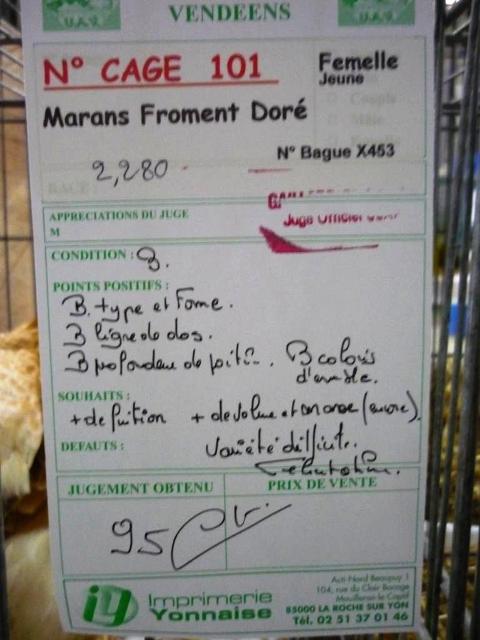 U.A.V. U.A.V.
VENDEENS
N° CAGE 101
Femelle
Jeune
Marans Froment Doré
N° Bague X453
2,280
APPRECIATIONS DU JUGE
M
Juge Officiel
CONDITION : B.
POINTS POSITIFS :
B. type et Forme.
B ligne de dos.
B profondeur de poitri. B coloris
d'ensemble.
SOUHAITS :
+ de finition + de volume et encore (encore).
DEFAUTS : Variété difficile.
JUGEMENT OBTENU
PRIX DE VENTE
95
Imprimerie
Yonnaise
Acti-Nord Beaupuy 1
104, rue du Clair Bocage
Mouilleron le Captif
85000 LA ROCHE SUR YON
Tél. 02 51 37 01 46